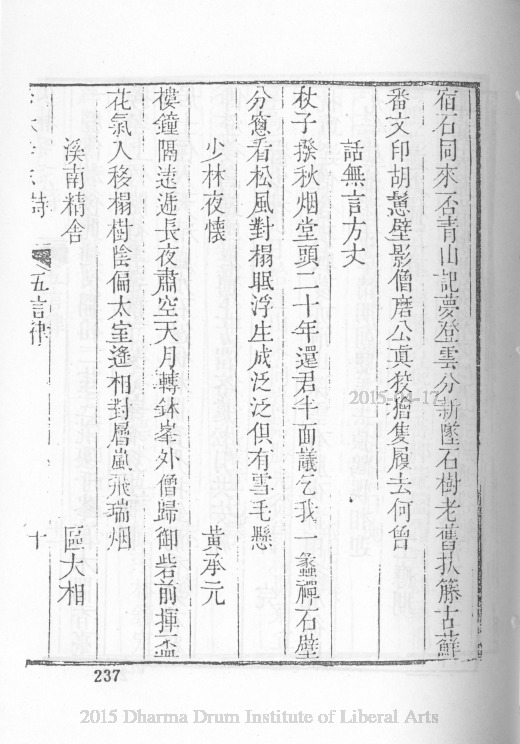 宿石同來否青山記夢登雲分新墜石樹老舊扒籐古蘚
番文印胡鬘壁影僧磨公真狡獪隻履去何曾
話無言方丈
杖子撥秋烟堂頭二十年還君半面議乞我一蠡禪石壁
分窻看松風對榻眠浮生成泛泛俱有雪毛懸
少林夜懷 黃承元
樓鐘隔遠遞長夜肅空天月轉鉢峯外僧歸御砦前揮盃
花氣入移榻樹陰偏太室遙相對層嵐飛瑞烟
溪南精舍 區大相
詩 五言律 十
237
2015-04-17
2015 Dharma Drum Institute of Liberal Arts